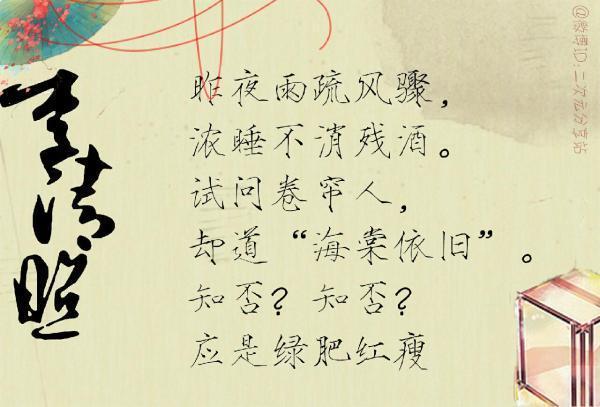 李清照
昨夜雨疏风骤，
浓睡不消残酒。
试问卷帘人，
却道“海棠依旧”。
知否？知否？
应是绿肥红瘦
@微博ID：二次元分享站